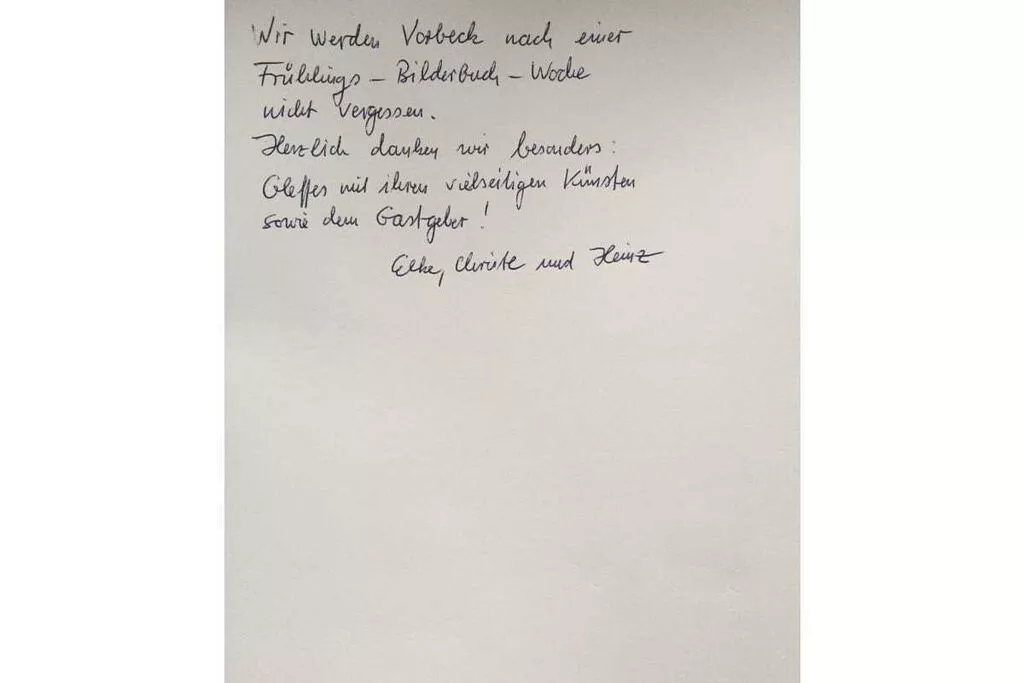 Wir werden Vorbeck nach einer
Frühlings – Bilderbuch – Woche
nicht vergessen.
Herzlich danken wir besonders:
mit ihren vielseitigen Künsten
sowie dem Gastgeber!
Elke, und Heinz